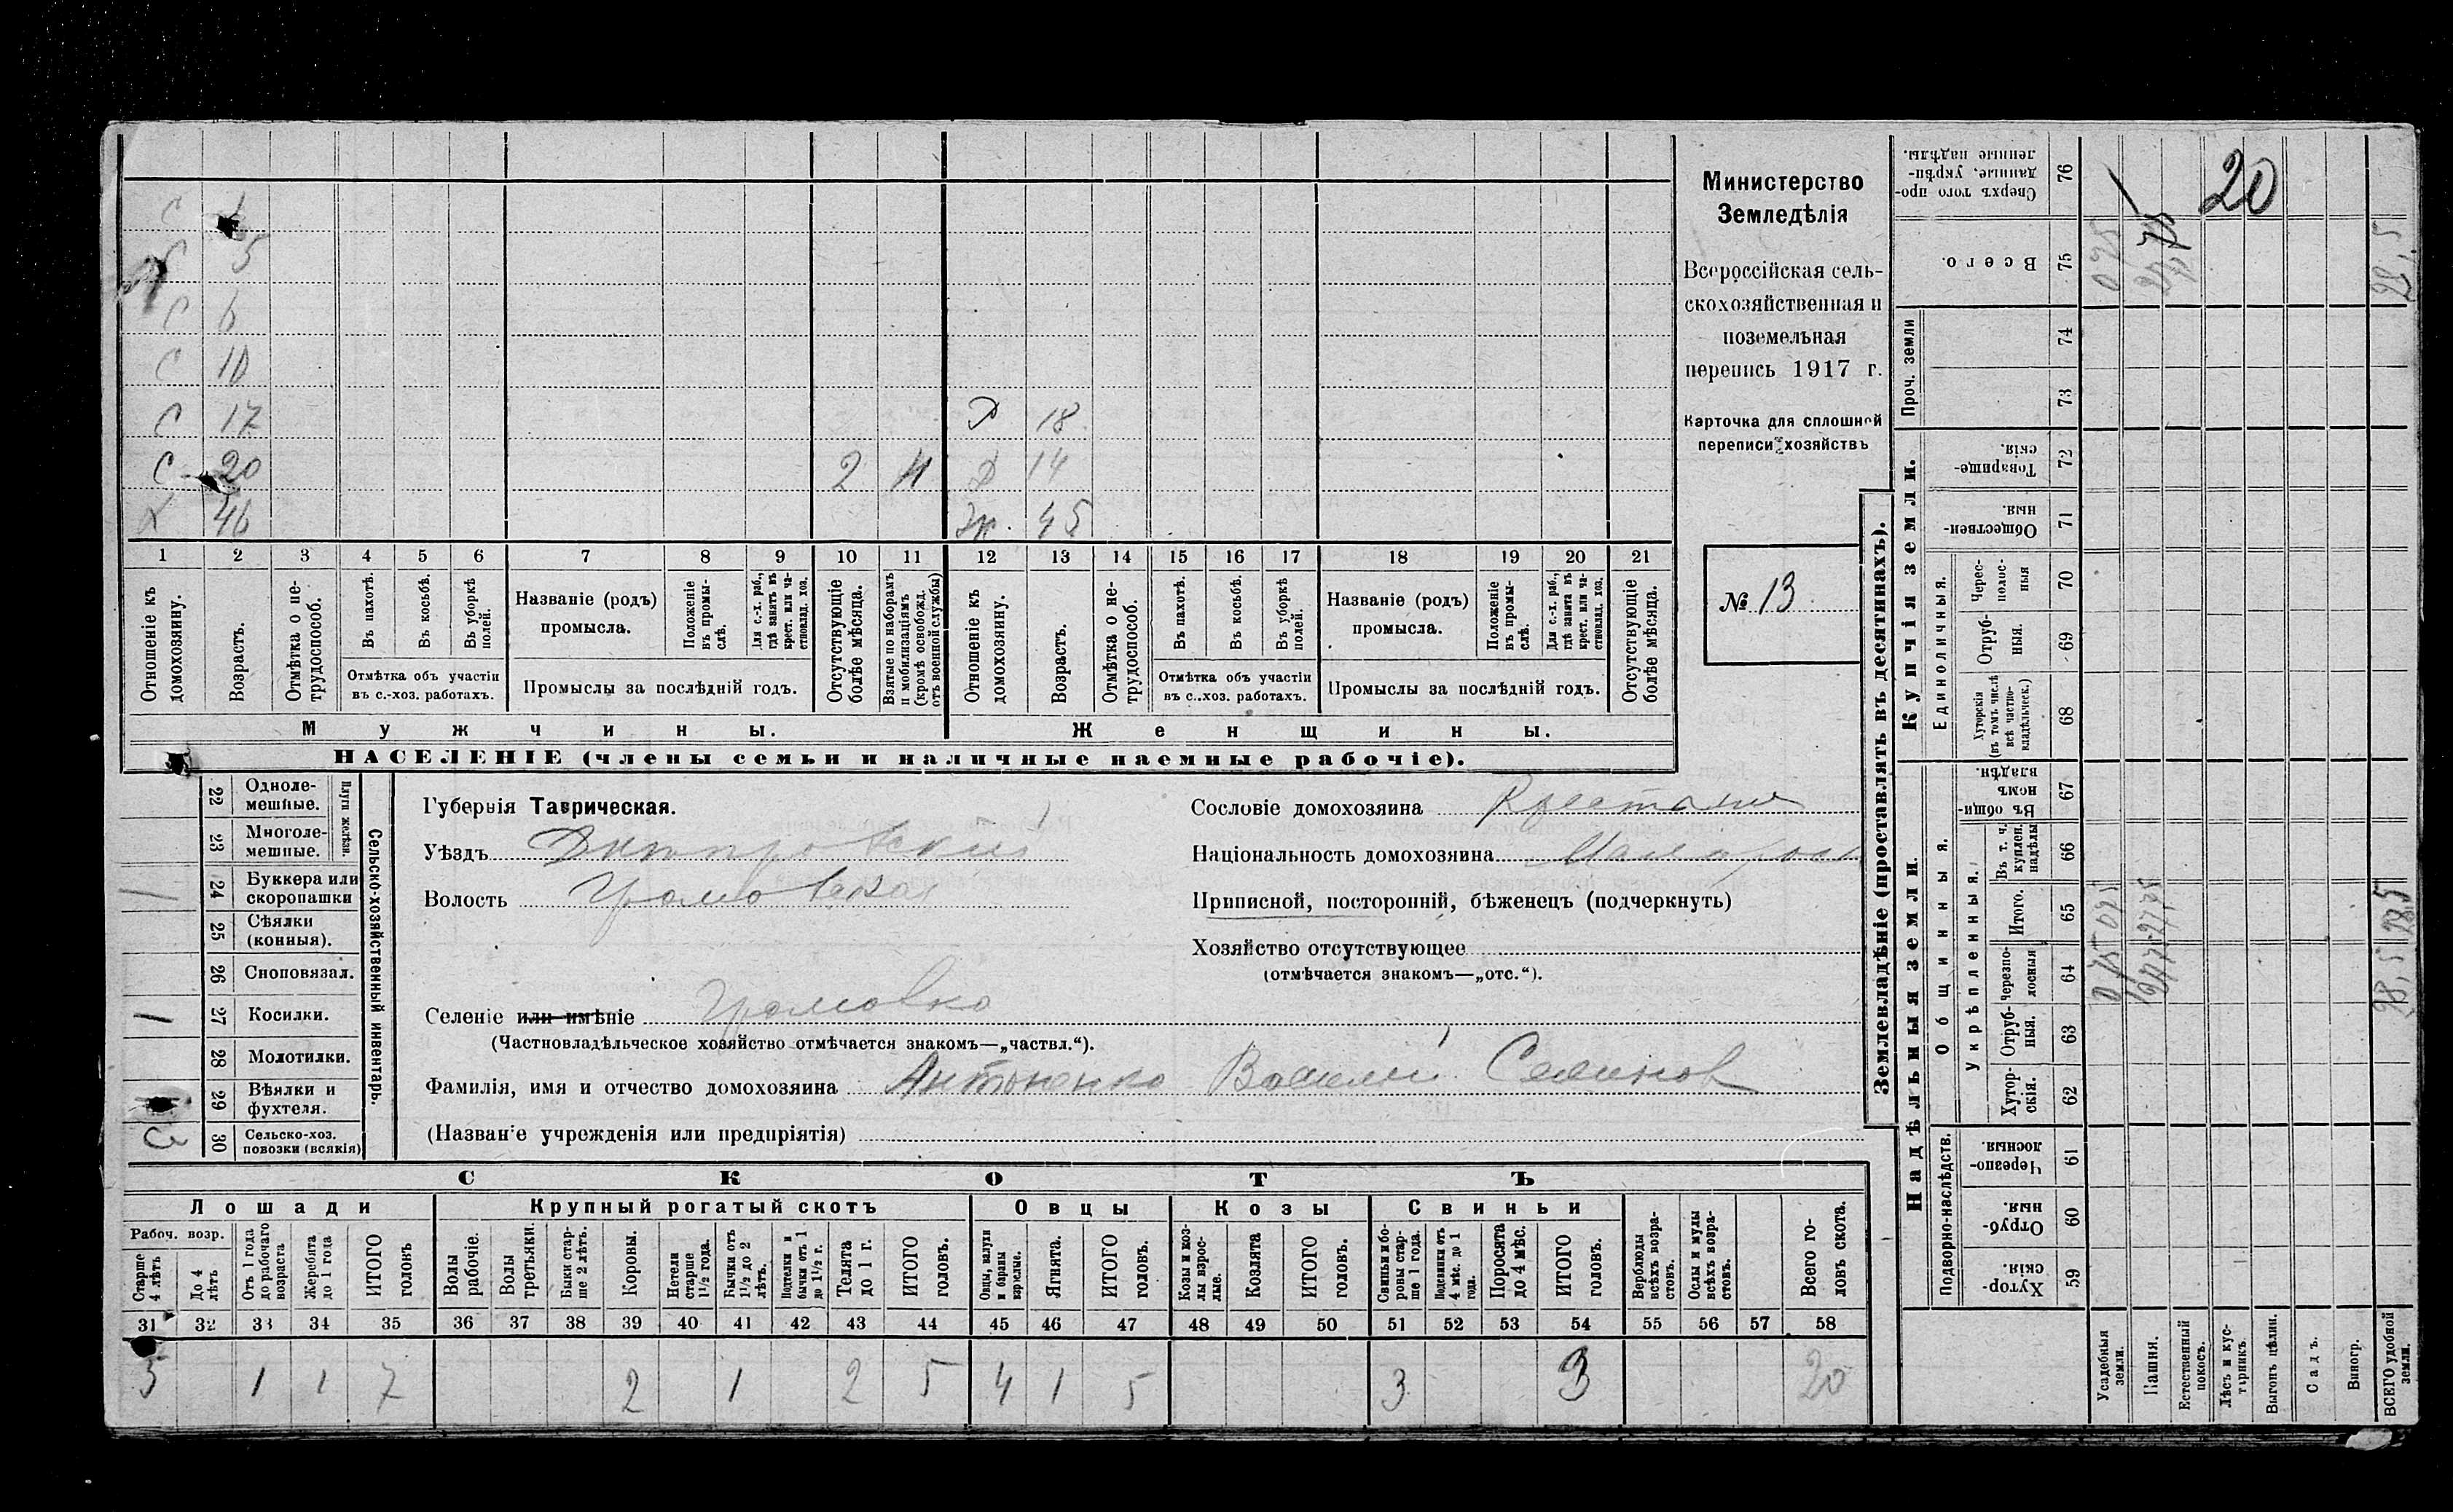 С 1
С 5
С 6
С 10
С 17 Д 18
С 20 2 Д 14
Х 46 Ж. 45
1 2 3 4 5 6 7 8 9 10 11 12 13 14 15 16 17 18 19 20 21
Отношеніе къ домохозяину.
Возрастъ.
Отмѣтка о не-трудоспособ.
Въ пахотѣ.
Въ косьбѣ.
Въ уборкѣ полей.
Отмѣтка объ участіи
въ с.-хоз. работахъ.
Названіе (родъ)
промысла.
Положеніе въ промы-слѣ.
Для с.-х. раб., гдѣ занятъ въ крест. или ча-стновлад. хоз.
Промыслы за послѣдній годъ.
Отсутствующіе болѣе мѣсяца.
Взятые по наборамъ и мобилизаціямъ (кромѣ освобожд. отъ военной службы)
Отношеніе къ домохозяину.
Возрастъ.
Отмѣтка о не-трудоспособ.
Въ пахотѣ.
Въ косьбѣ.
Въ уборкѣ полей.
Отмѣтка объ участіи
въ с.-хоз. работахъ.
Названіе (родъ)
промысла.
Положеніе въ промы-слѣ.
Для с.-х. раб., гдѣ занята въ крест. или ча-стновлад. хоз.
Промыслы за послѣдній годъ.
Отсутствующіе болѣе мѣсяца.
Мужчины.
Женщины.
НАСЕЛЕНІЕ (члены семьи и наличные наемные рабочіе).
Министерство
Земледѣлія
Всероссійская сель-
скохозяйственная и
поземельная
перепись 1917 г.
Карточка для сплошной
переписи хозяйствъ
№ 13
Сельско-хозяйственный инвентарь.
Плуги желѣзн.
22 Одноле-мешные.
23 Многоле-мешные.
24 Буккера или скоропашки 1
25 Сѣялки (конныя).
26 Сноповязал.
27 Косилки. 1
28 Молотилки.
29 Вѣялки и фухтеля.
30 Сельско-хоз. повозки (всякія)
Губернія Таврическая.
Уѣздъ Днѣпровскій
Волость Громовская
Селеніе или имѣніе Громовка
(Частновладѣльческое хозяйство отмѣчается знакомъ—„частвл.“).
Фамилія, имя и отчество домохозяина Антоненко Василий Семенов
(Названіе учрежденія или предпріятія)
Сословіе домохозяина Крестьянин
Національность домохозяина Малорос
Приписной, посторонній, бѣженецъ (подчеркнуть)
Хозяйство отсутствующее
(отмѣчается знакомъ—„отс.“).
СКОТЪ
Лошади
Крупный рогатый скотъ
Овцы
Козы
Свиньи
Рабоч. возр.
Старше 4 лѣтъ
До 4 лѣтъ
Отъ 1 года до рабочаго возраста
Жеребята до 1 года
ИТОГО головъ
Волы рабочіе.
Волы третьяки.
Быки стар-ше 2 лѣтъ.
Коровы.
Нетели старше 1½ года.
Бычки отъ 1½ до 2 лѣтъ.
Подтелки и бычки отъ 1 до 1½ г.
Телята до 1 г.
ИТОГО головъ.
Овцы, валухи и бараны взрослые.
Ягнята.
ИТОГО головъ.
Козы и коз-лы взрос-лые.
Козлята
ИТОГО головъ.
Свиньи и бо-ровы стар-ше 1 года.
Подсвинки отъ 4 мѣс. до 1 года.
Поросята до 4 мѣс.
ИТОГО головъ.
Верблюды всѣхъ возра-стовъ.
Ослы и мулы всѣхъ возра-стовъ.
Всего го-ловъ скота.
31 32 33 34 35 36 37 38 39 40 41 42 43 44 45 46 47 48 49 50 51 52 53 54 55 56 57 58
5 1 1 7 2 1 2 5 4 1 5 3 3 20
Землевладѣніе (проставлять въ десятинахъ).
Надѣльныя земли.
Купчія земли.
Проч. земли
Подворно-наслѣдств.
Общинныя.
Укрѣпленныя.
Единоличныя.
Сверхъ того про-данные, укрѣп-ленные надѣлы. 76
Всего. 75
74
73
Товарище-скія. 72
Обществен-ныя. 71
Черес-полос-ныя 70
Отруб-ныя. 69
Хуторскія (въ томъ числѣ всѣ частно-владѣльческ.) 68
Въ общи-номъ владѣн. 67
Въ т. ч. куплен. надѣлы 66
Итого. 65
Черезпо-лосныя 64
Отруб-ныя. 63
Хутор-скія. 62
Черезпо-лосныя. 61
Отруб-ныя. 60
Хутор-скія. 59
Усадебныя земли.
Пашня.
Естественный покосъ.
Лѣсъ и кус-тарникъ.
Выгонъ цѣлин.
Садъ.
Виногр.
ВСЕГО удобной земли.
20
0,75
27,75
28,5
0,75 0,75
27,75 27,75
28,5 28,5